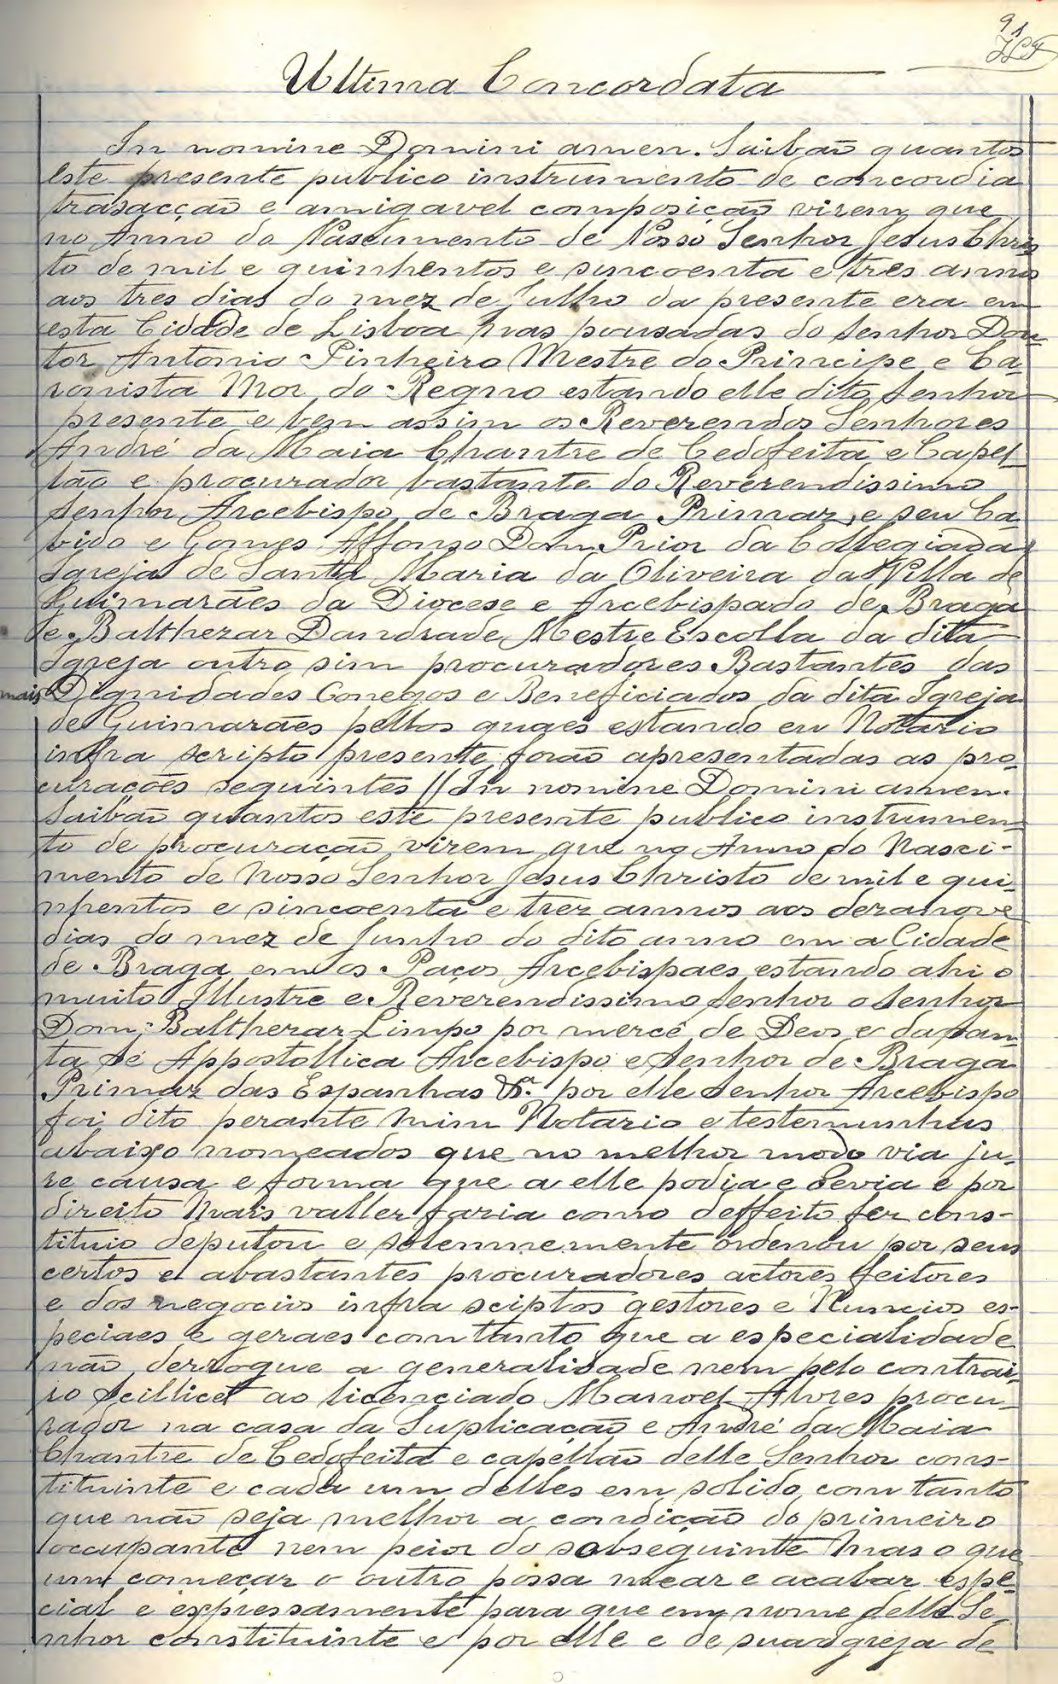 91
Ultima Concordata
In nomine Domini amen. Saibaõ quantos
este presente publico instrumento de concordia
trasacçaõ e amigavel composiçaõ virem que
no Anno do Nascimento de Nosso Senhor Jesus Chris
to de mil e quinhentos e sincoenta e tres annos
aos tres dias do mez de Julho da presente era em
esta Cidade de Lisboa nas pousadas do Senhor Dou
tor Antonio Pinheiro Mestre do Principe e Ca-
ronista Mor do Regno estando elle dito Senhor
presente e bem assim os Reverendos Senhores
André da Maia Chantre de Cedofeita e Capel
lão e procurador bastante do Reverendissimo
Senhor Arcebispo de Braga Primaz, e seu Ca
bido e Gomes Affonso Dom Prior da Collegiada
Igreja de Santa Maria da Oliveira da Villa de
Guimarães da Diocese e Arcebispado de Braga
e Balthezar Dandrade Mestre Escolla da dita
Igreja outro sim procuradores Bastantes das
mais Dignidades Conegos e Beneficiados da dita Igreja
de Guimarães pellos quaes estando eu Notario
infra scripto presente foraõ apresentadas as pro-
curações seguintes // In nomine Domini amen.
Saibaõ quantos este presente publico instrumen-
to de procuraçaõ virem que no Anno do Nasci-
mento de Nosso Senhor Jesus Christo de mil e qui-
nhentos e sincoenta e trez annos aos dezanove
dias do mez de Junho do dito anno em a Cidade
de Braga em os Paços Arcebispaes estando ahi o
muito Illustre e Reverendissimo Senhor o Senhor
Dom Balthezar Limpo por mercê de Deos e da San
ta Sé Appostollica Arcebispo e Senhor de Braga
Primaz das Espanhas &.ª por elle Senhor Arcebispo
foi dito perante mim Notario e testemunhas
abaixo nomeados que no melhor modo via ju-
re causa e forma que a elle podia e devia e por
direito mais valler faria como deffeito fez cons-
tituio deputou e solemnemente ordenou por seus
certos e abastantes procuradores actores feitores
e dos negocios infra sciptos gestores e Nuncios es-
peciaes e geraes com tanto que a especialidade
não derrogue a generalidade nem pelo contrai-
ro Scillicet ao licenciado Manoel Alvres procu-
rador na casa da Suplicaçaõ e André da Maia
Chantre de Cedofeita e capellaõ delle Senhor cons-
tituinte e cada um delles em solido com tanto
que não seja melhor a condiçaõ do primeiro
occupante nem peior do subseguinte mas o que
um começar o outro possa mear e acabar espe-
cial e expressamente para que em nome delle Se-
nhor constituinte e por elle e de sua Igreja de